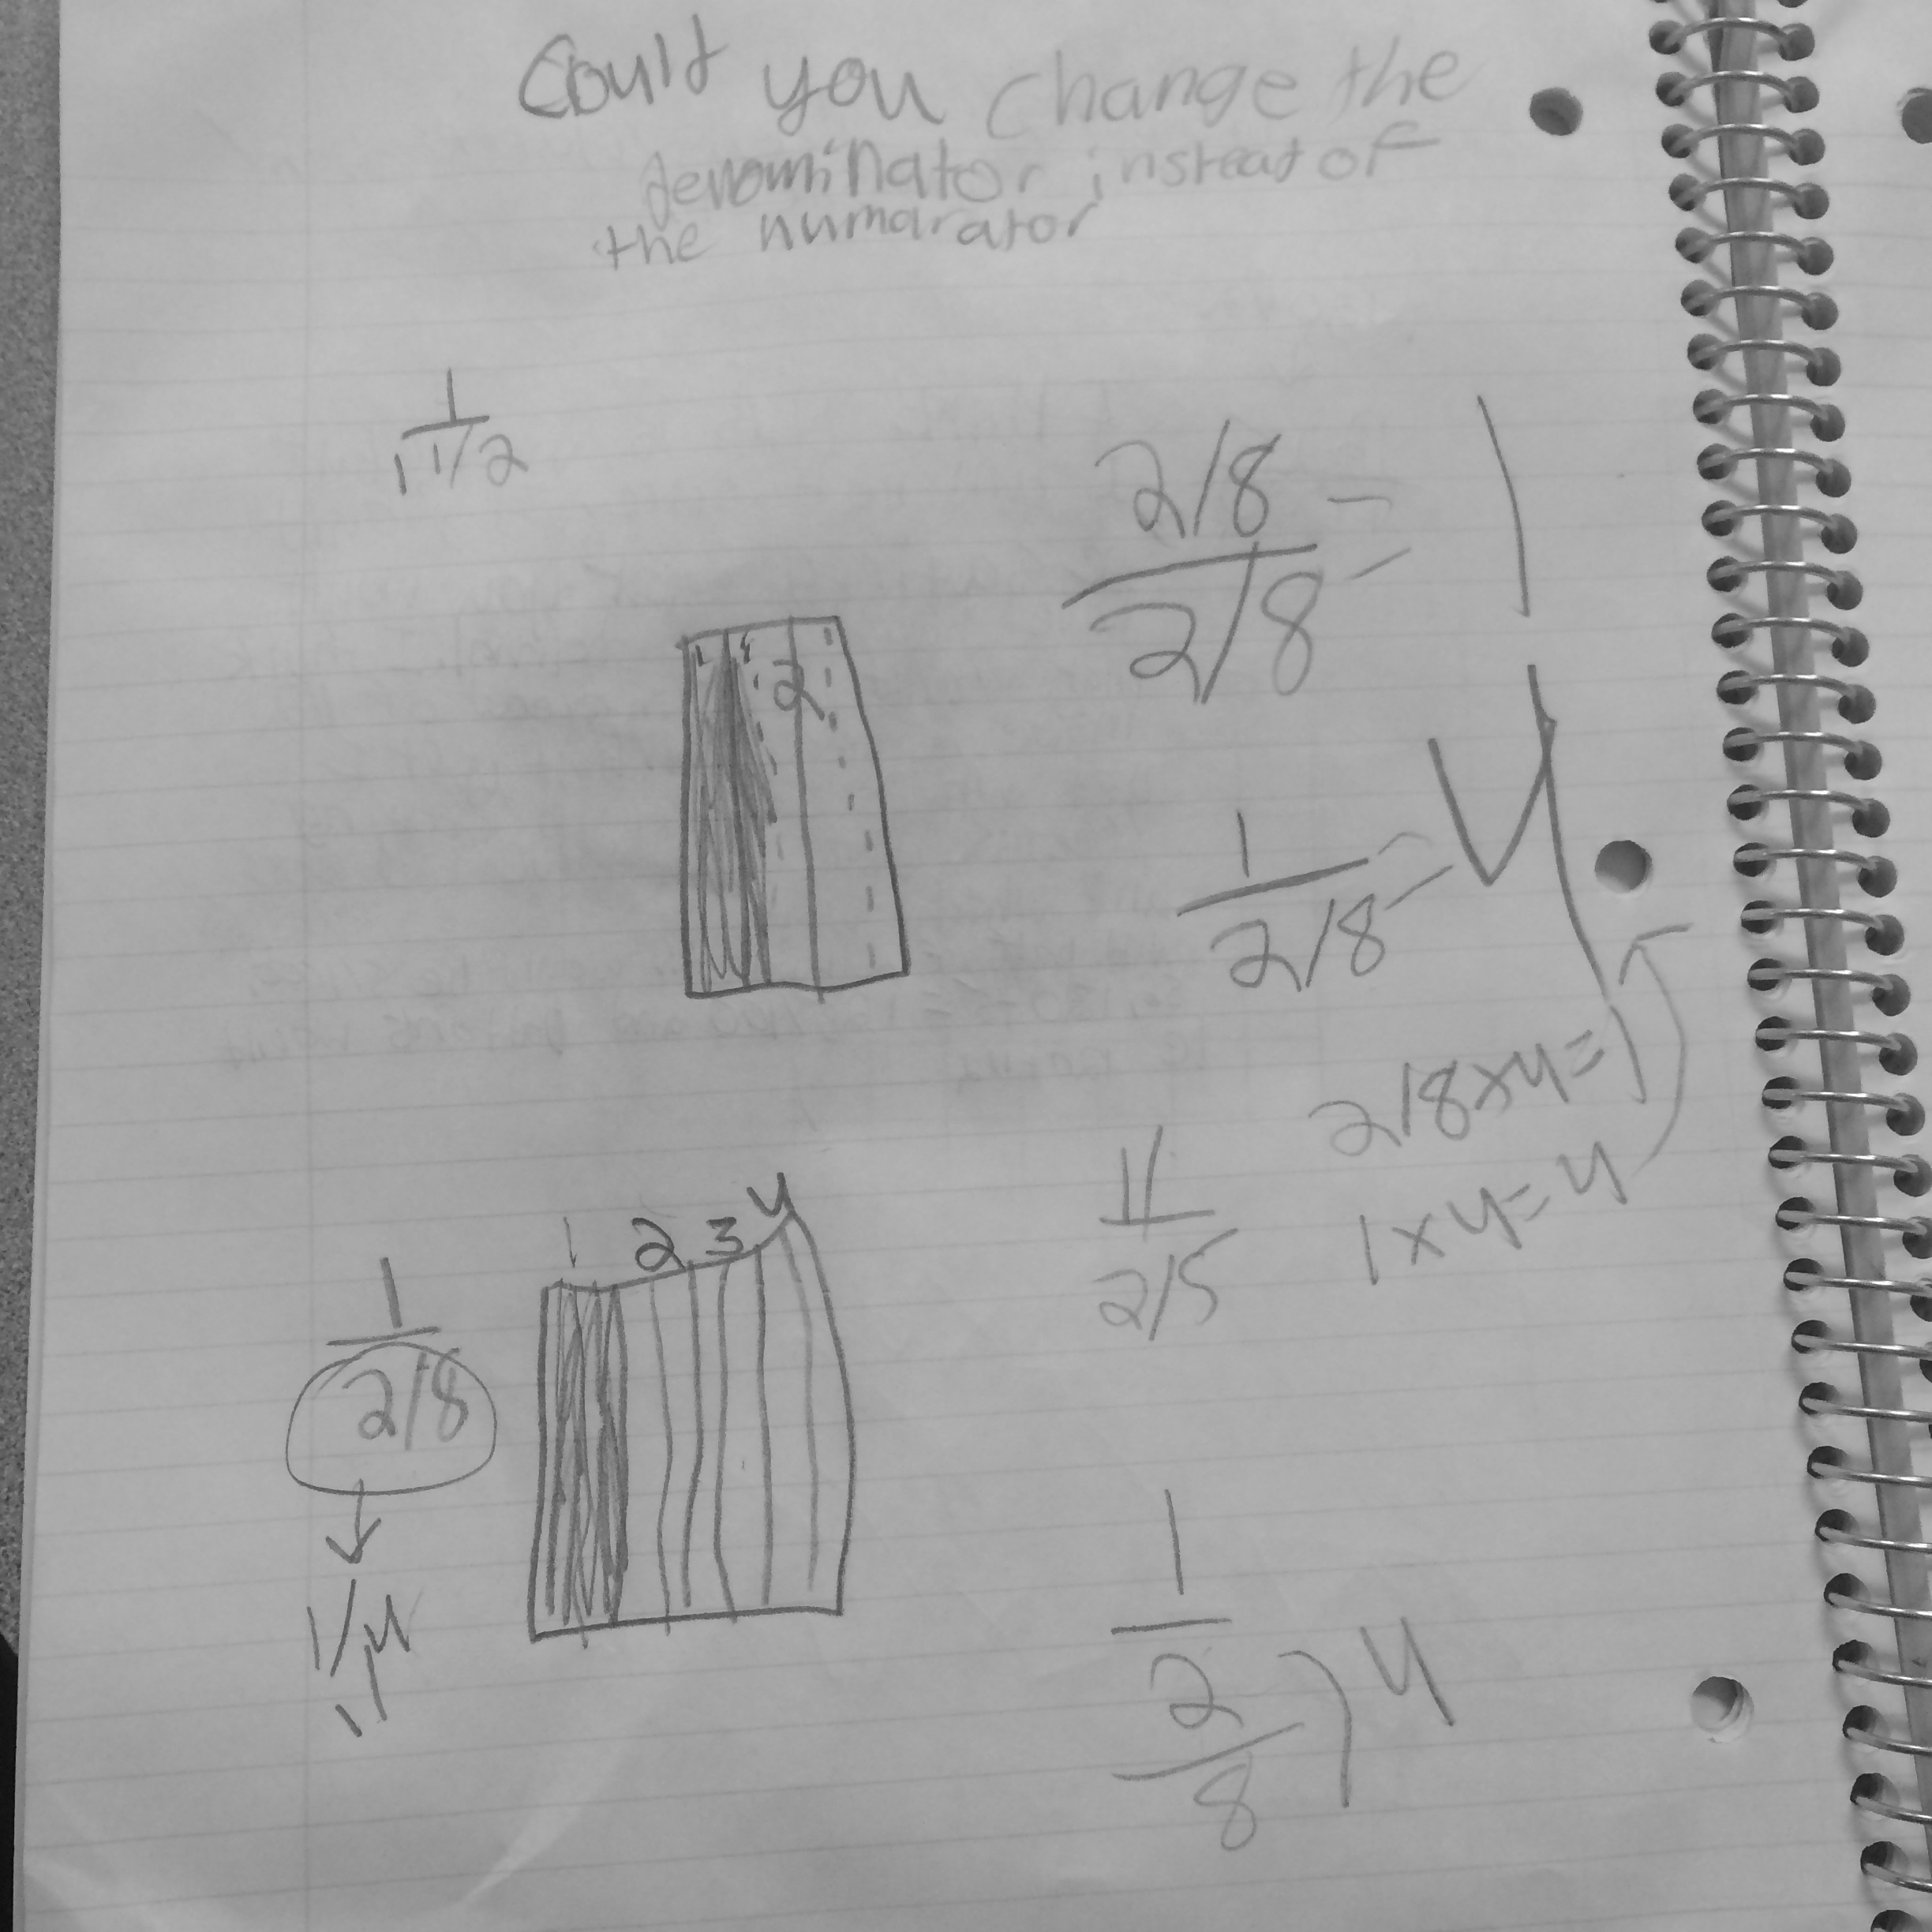 Could you change the
denominator insteat of
the numarator
1
1 1/2
2/8
2/8
= 1
2
1
2/8
= 4
2/8 x 4 = 1
1 x 4 = 4
11
2/5
1 2 3 4
1
2/8
1/4
1
2
8
4